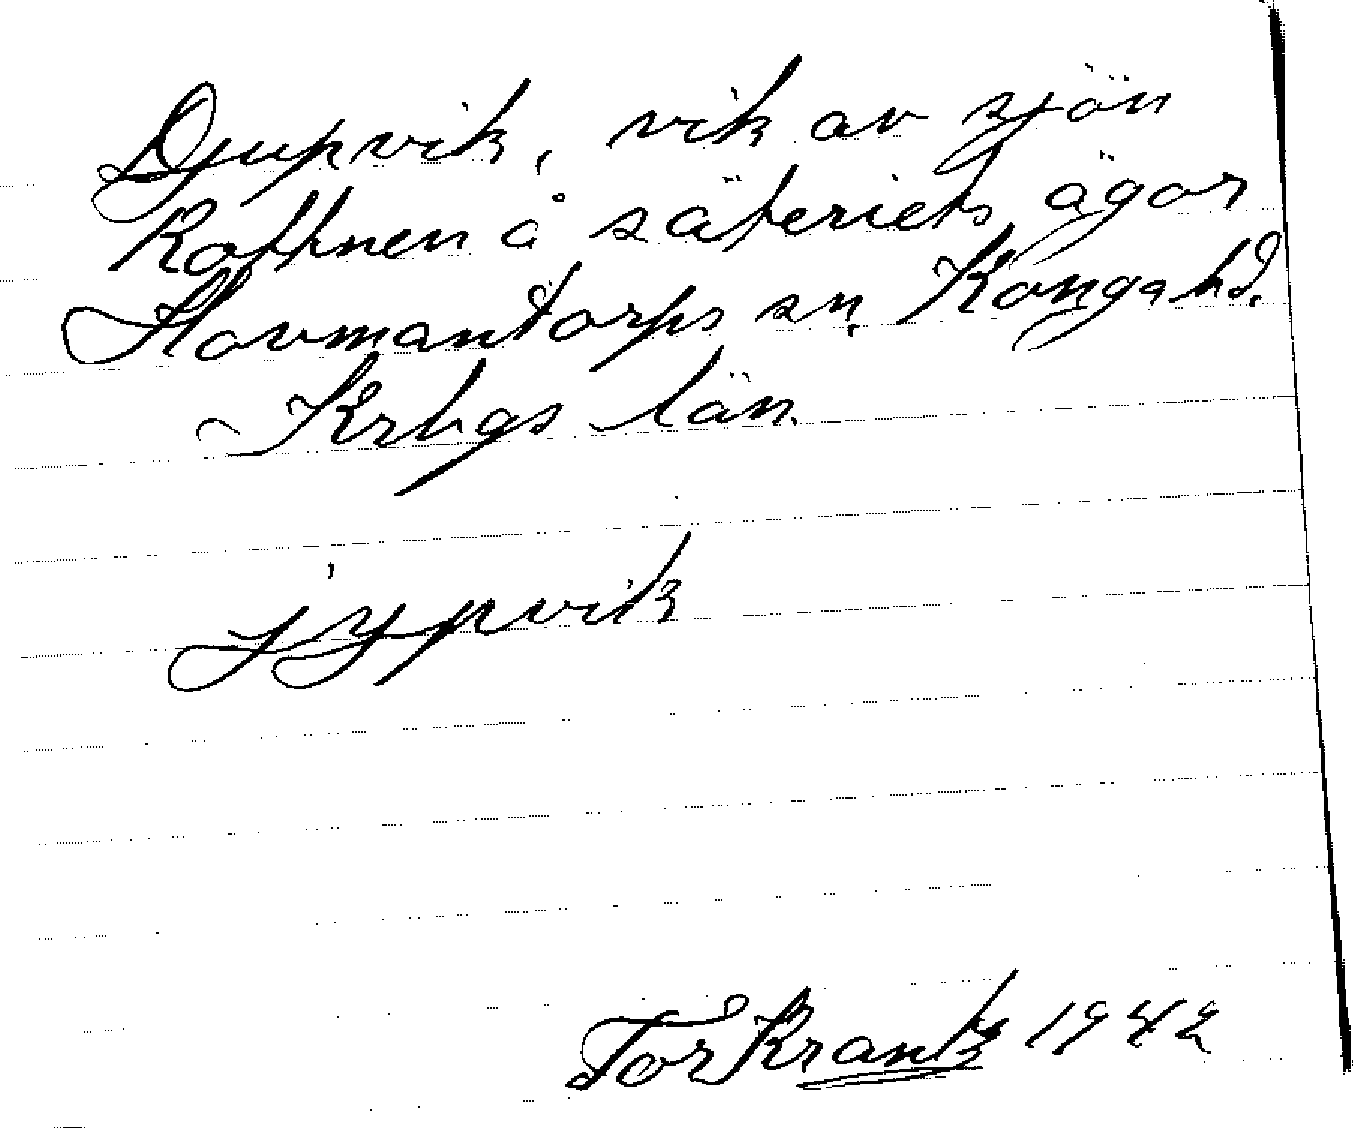 Djupvik, vik av sjön
Rottnen å säteriets ägor
Hovmantorps sn, Konga hd.
Krbgs län.
j'ypvik
Tor Krantz 1942